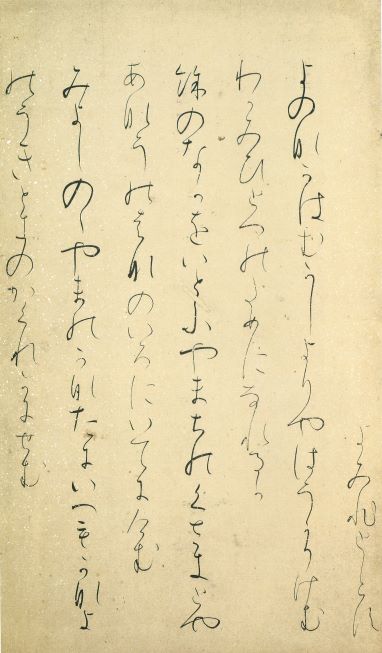 よみ比としらす
よのなかはむかしよりやはうかりけむ
わかみひとつのためになれるか
餘のなかをいとふやまへのくさきとや
あなうのはなのいろにいてにけむ
みよしのゝやまのかなたにいへもかなよ
のうきときのかくれかにせむ